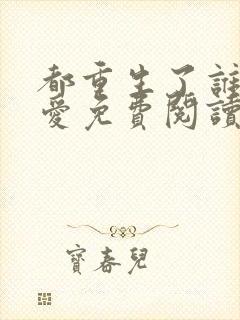 都重生了誰
愛免費閱讀
寶春兒